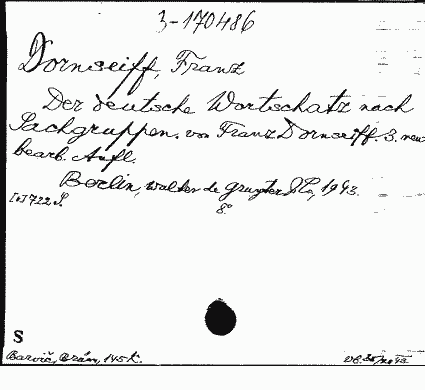 3-170486
Dornseiff, Franz
Der deutsche Wortschatz nach
Sachgruppen. von Franz Dornseiff. 3. neu
bearb. Aufl.
Berlin, Walter de Gruyter & Co, 1943.
8°
722 S.
S
Barvič, Brno, 145 K.